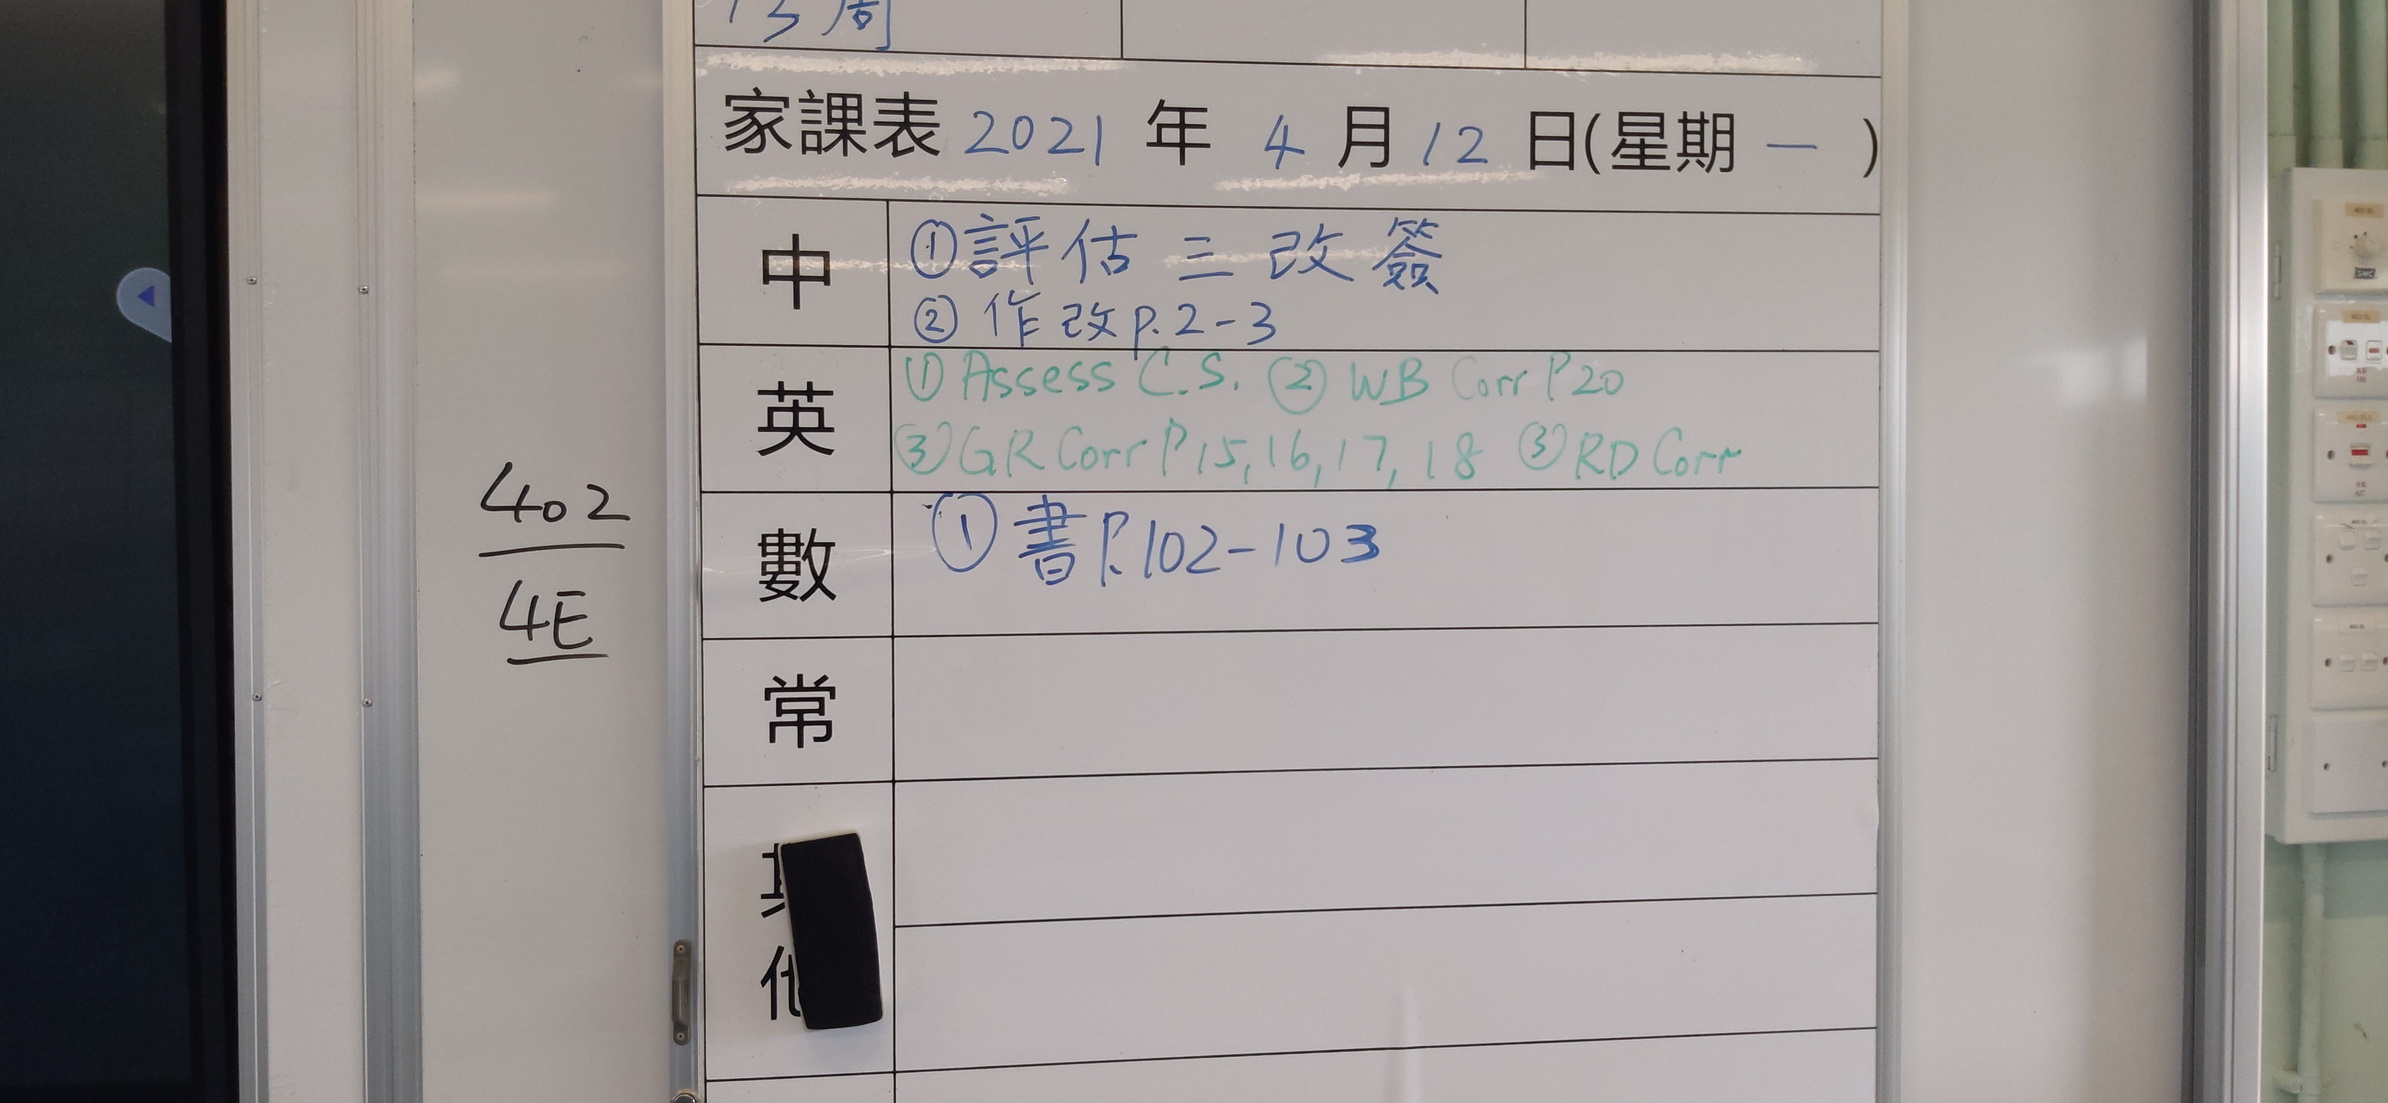 13周
家課表 2021 年 4 月 12 日(星期 一 )
中
①評估三改簽
②作改p.2-3
英
① Assess C.S. ② WB Corr P20
③ GR Corr P15,16,17,18 ③ RD Corr
數
①書P.102-103
常
其他
402
4E